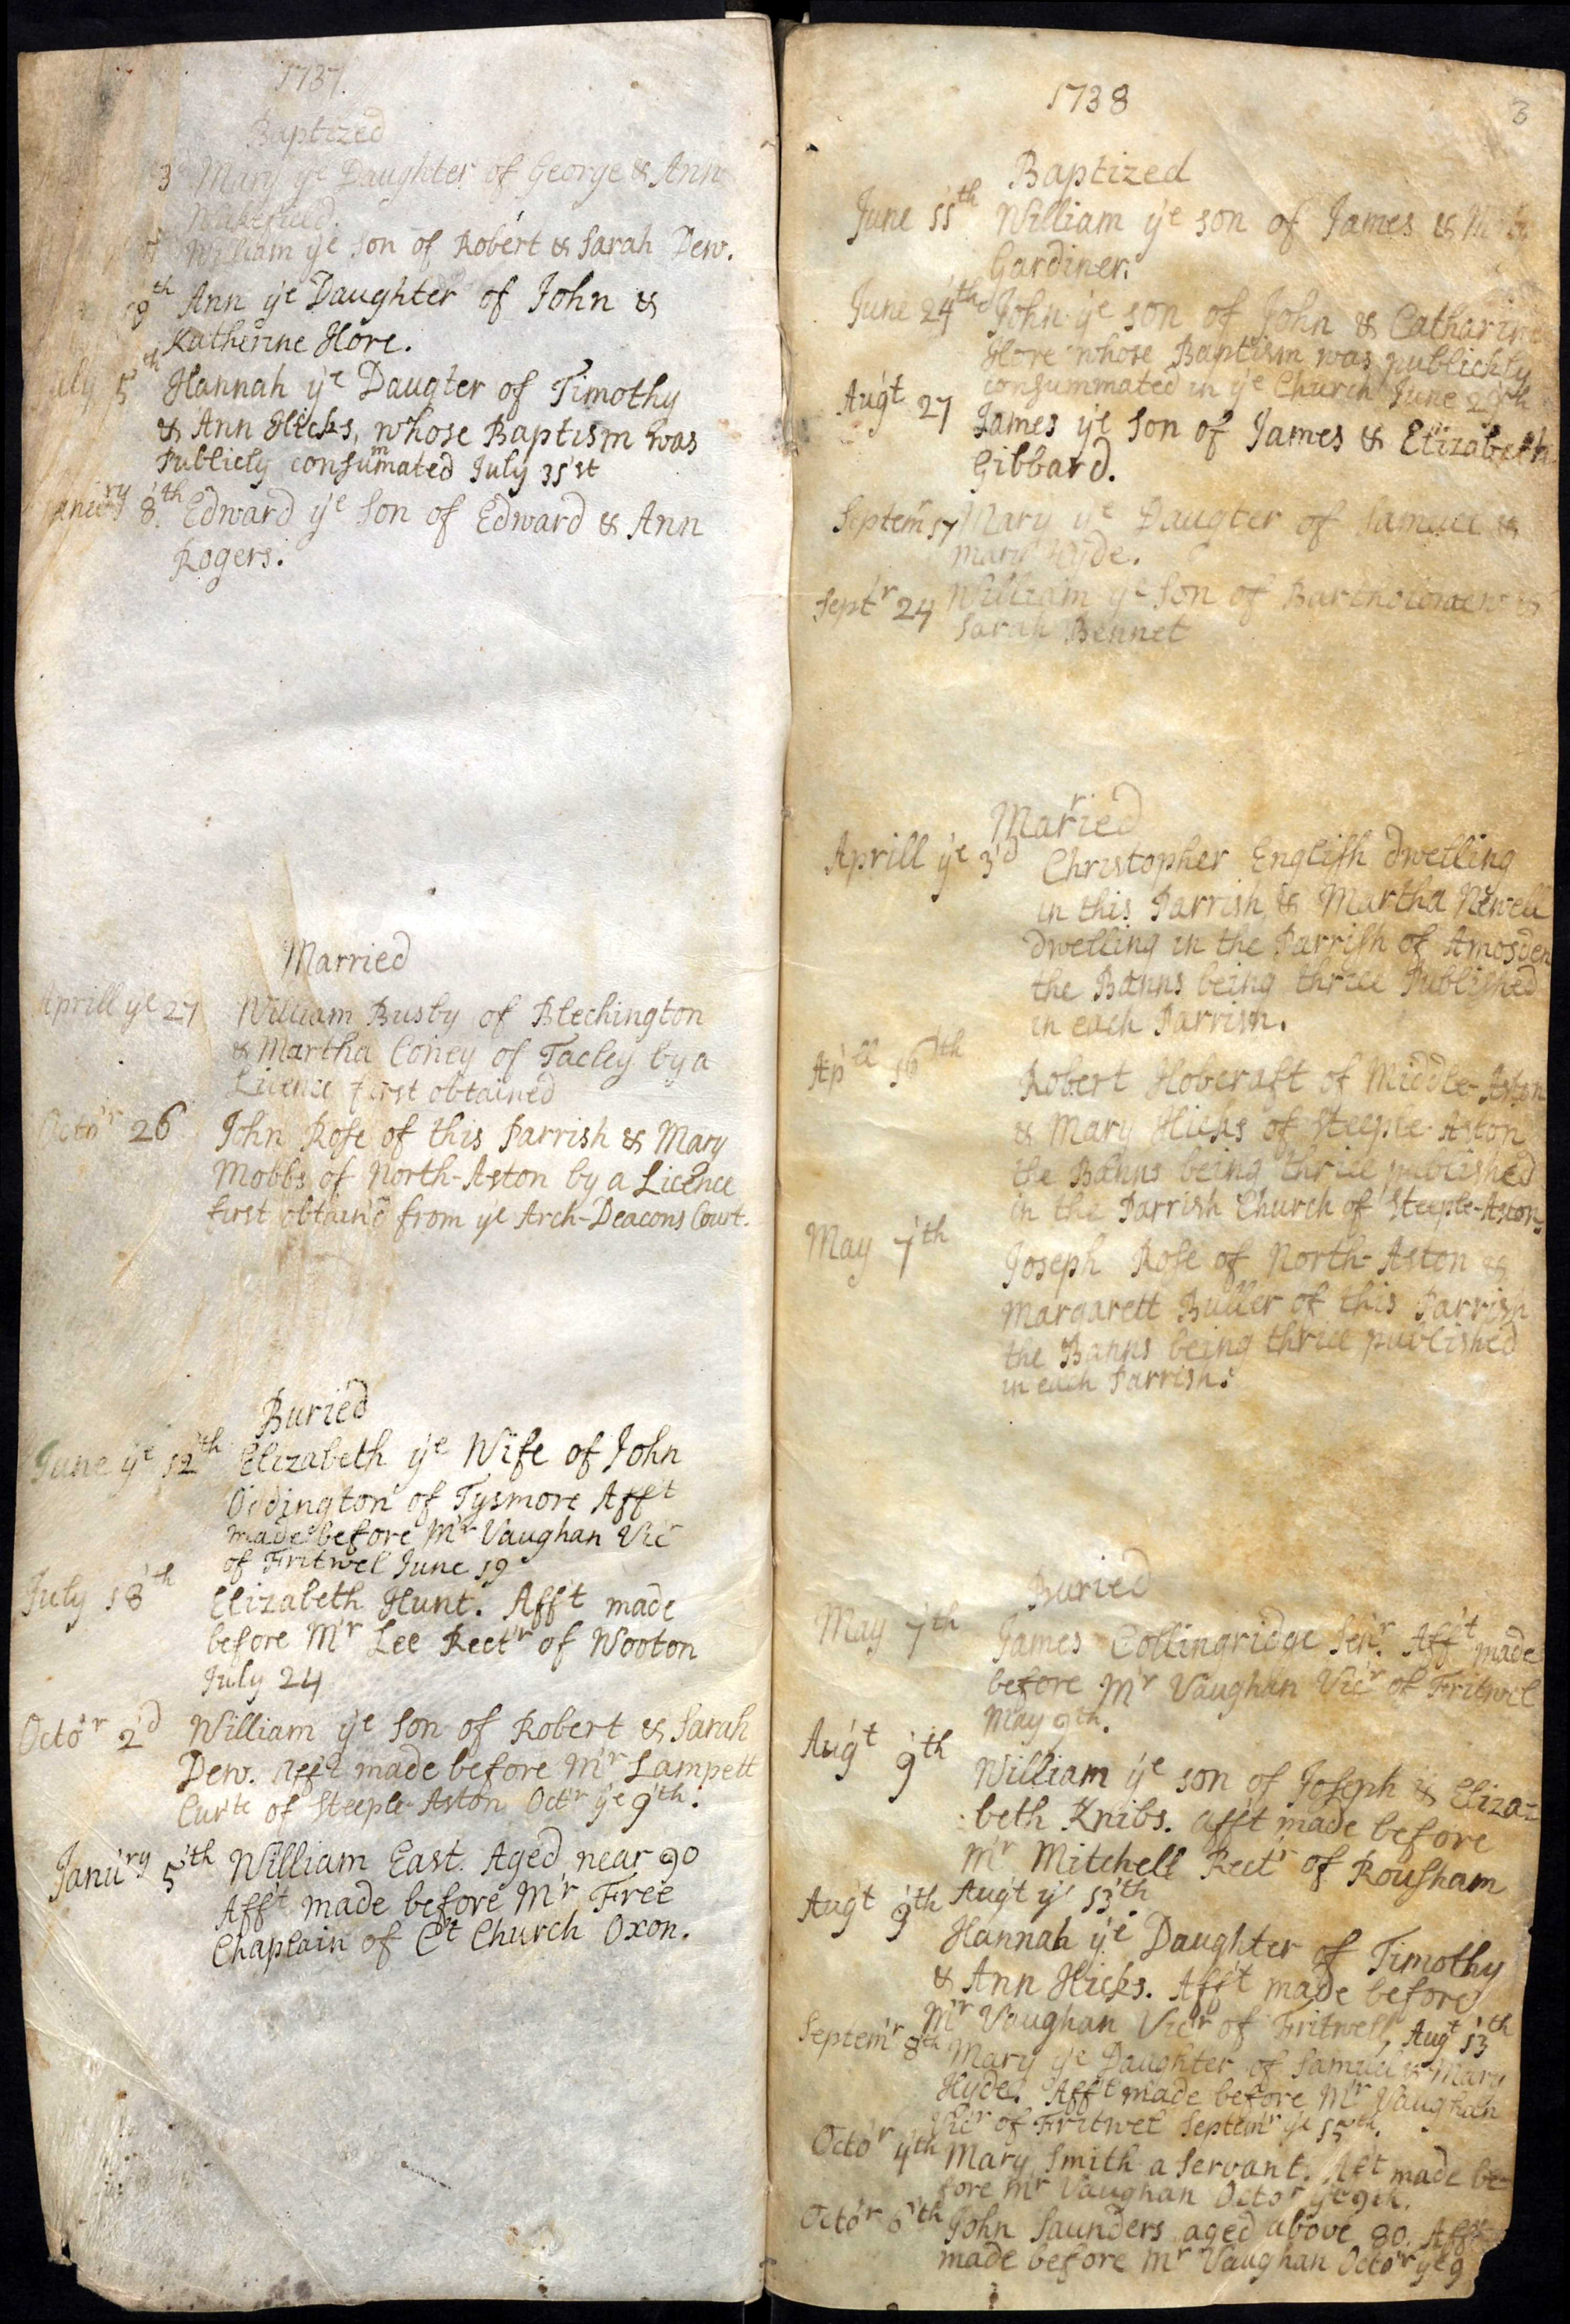 1737.
Baptized
3 Mary ye Daughter of George & Ann
Wakefield.
William ye son of Robert & Sarah Dew.
th Ann ye Daughter of John &
Katherine Hore.
July 5th Hannah ye Daugter of Timothy
& Ann Hicks, whose Baptism was
Publicly consummated July 31st
Janiery 8th Edward ye son of Edward & Ann
Rogers.
Married
Aprill ye 27 William Busby of Blechington
& Martha Coney of Tacley by a
Licence first obtained
Octo'r 26 John Rose of this Parrish & Mary
Mobbs of North-Aston by a Licence
first obtain'd from ye Arch-Deacons Court.
Buried
June ye 12th Elizabeth ye Wife of John
Oddington of Tysmore Afft
made before Mr Vaughan Vic
of Fritwel June 19
July 18th Elizabeth Hunt. Afft made
before Mr Lee Rect'r of Wooton
July 24
Octo'r 2d William ye son of Robert & Sarah
Dew. Afft made before Mr Lampett
Curte of Steeple-Aston Octr ye 9th.
Janu'ry 5th William East. Aged near 90
Afft made before Mr Free
Chaplain of Ct Church Oxon.
1738
3
Baptized
June 11th William ye son of James &
Gardiner.
June 24th John ye son of John & Catharine
Hore whose Baptism was publickly
consummated in ye Church June 29th
Augt 27 James ye son of James & Elizabeth
Gibbard.
Septem 17 Mary ye Daugter of Samuel &
Mary Hyde.
Sept'r 24 William ye son of Bartholomew &
Sarah Bennet
Married
Aprill ye 3d Christopher English dwelling
in this Parrish & Martha Newell
dwelling in the Parrish of Amosden
the Banns being thrice Published
in each Parrish.
Ap'll 16th Robert Hobcraft of Middle-Aston
& Mary Hicks of Steeple-Aston
the Banns being thrice published
in the Parrish Church of Steeple-Aston,
May 7th Joseph Rose of North-Aston &
Margarett Buller of this Parrish
the Banns being thrice published
in each Parrish.
Buried
May 7th James Collingridge Sen'r. Afft made
before Mr Vaughan Vic'r of Fritwel
May 9th.
Augt 9th William ye son of Joseph & Eliza=
beth Knibs. Afft made before
Mr Mitchell Rect'r of Rousham
Augt ye 13th
Augt 9th Hannah ye Daughter of Timothy
& Ann Hicks. Afft made before
Mr Vaughan Vic'r of Fritwell, Augt 13th
Septem'r 8th Mary ye Daughter of Samuel & Mary
Hyde. Afft made before Mr Vaughan
Vic'r of Fritwel Septem'r ye 15th.
Octo'r 4th Mary Smith a Servant. Aft made be-
fore Mr Vaughan Octor ye 9th.
Octo'r 6th John Saunders aged above 80. Afft
made before Mr Vaughan Octo'r ye 9